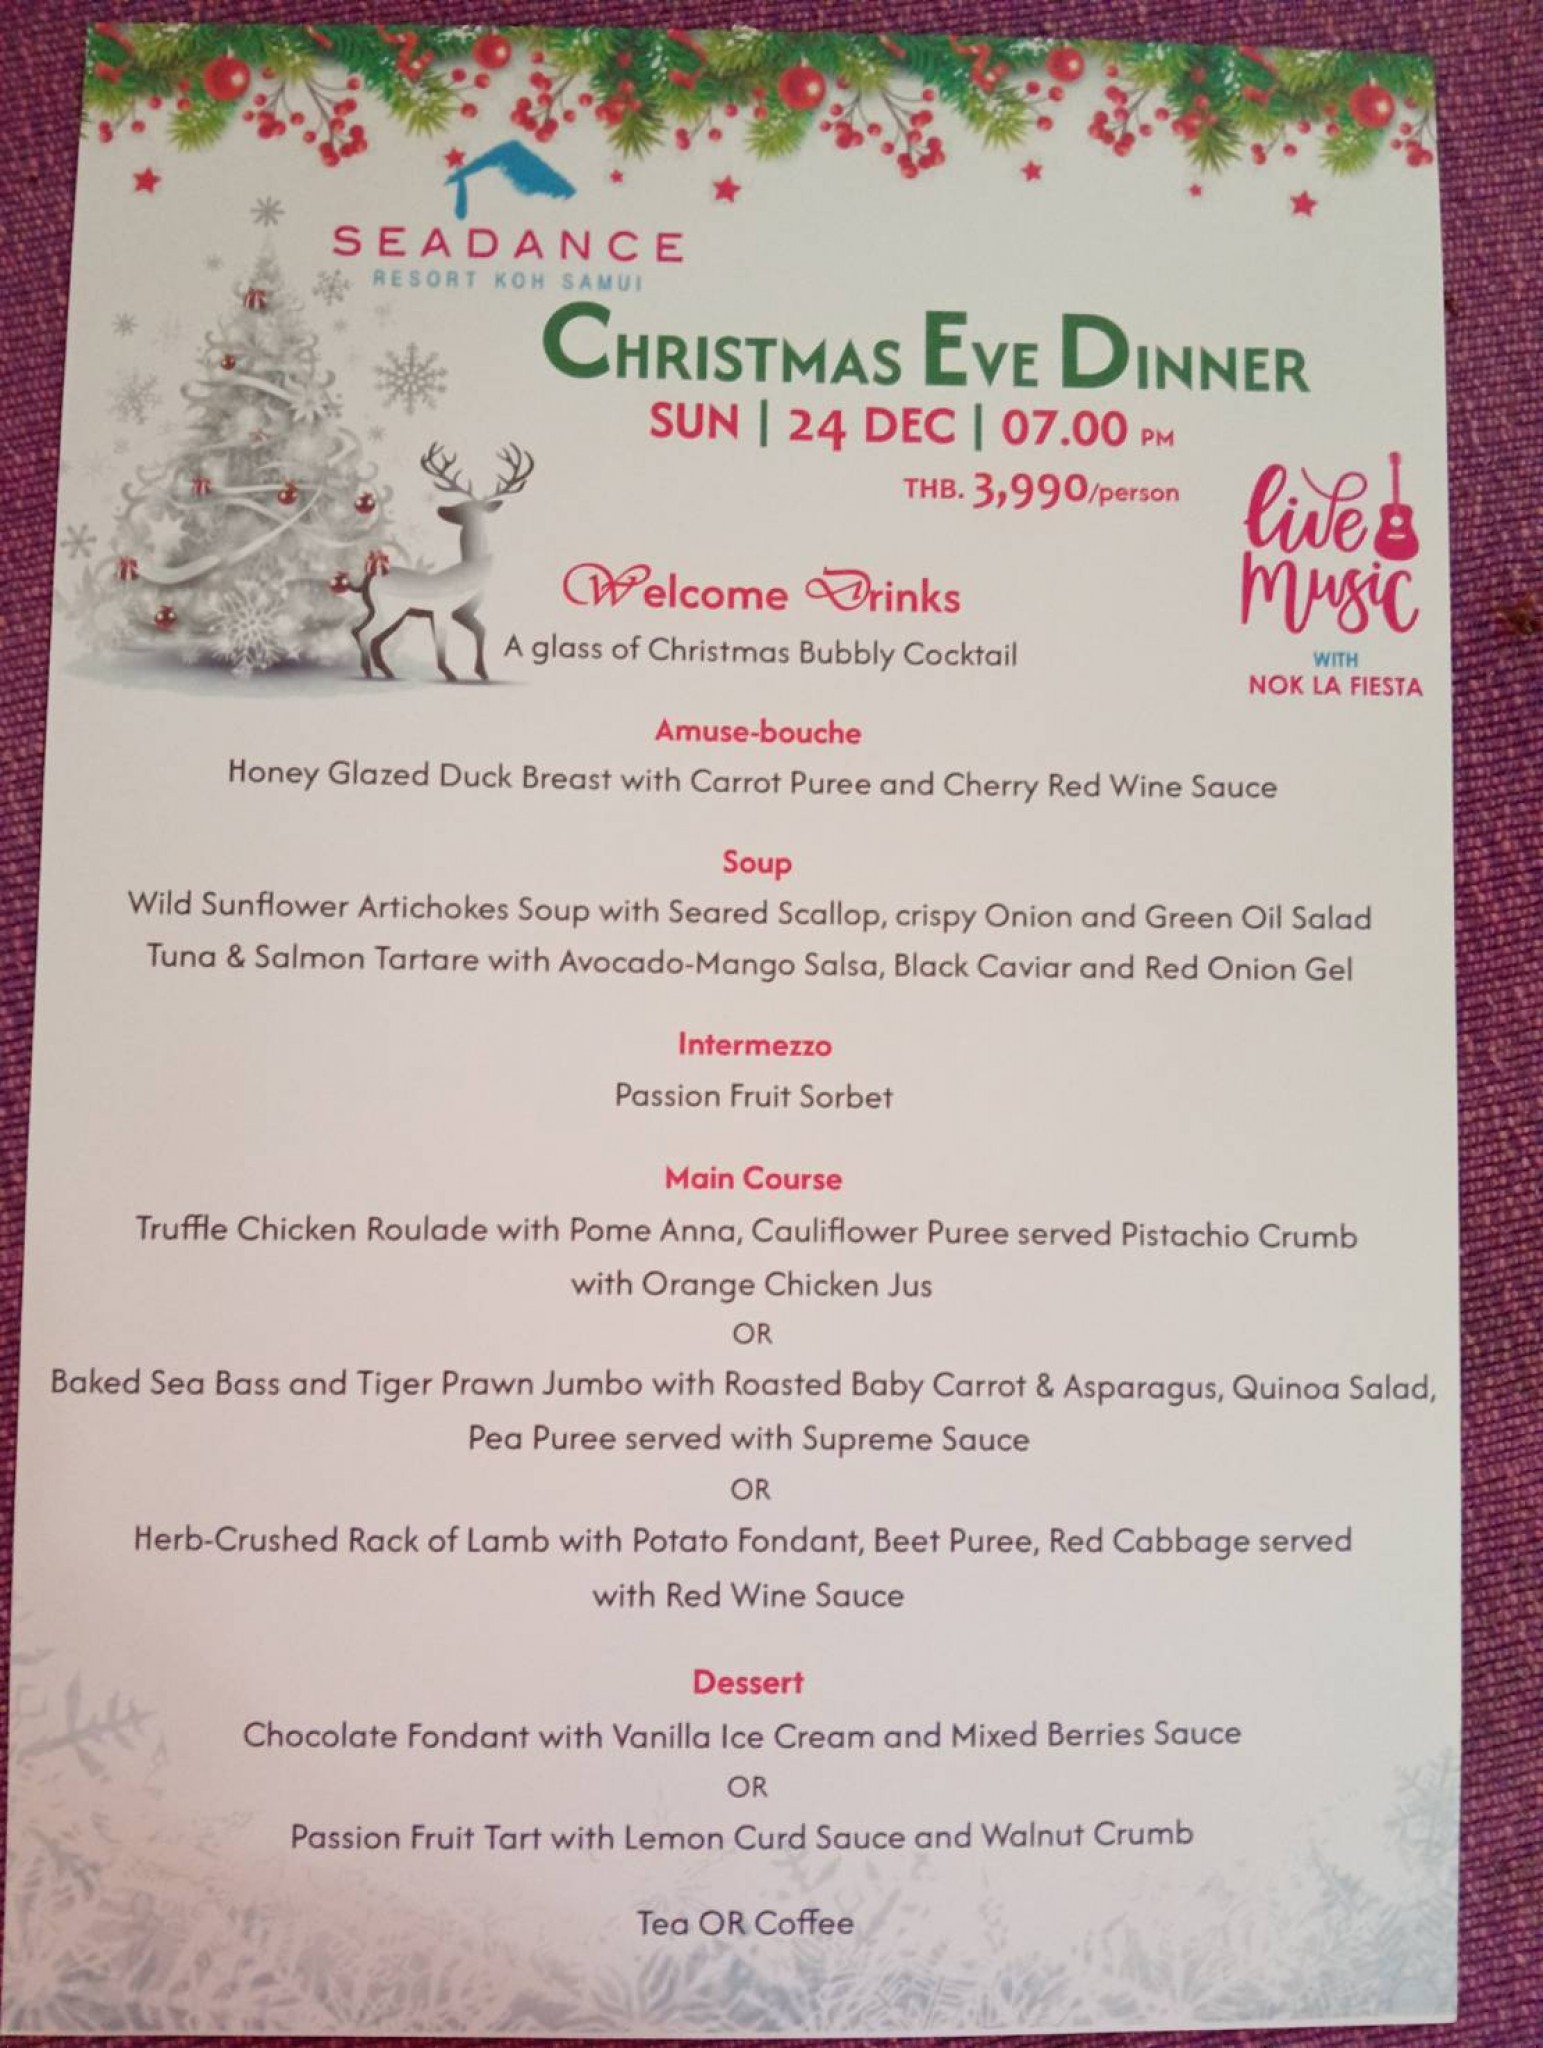 SEADANCE
RESORT KOH SAMUI
CHRISTMAS EVE DINNER
SUN | 24 DEC | 07.00 PM
THB. 3,990/person
live
music
WITH
NOK LA FIESTA
Welcome Drinks
A glass of Christmas Bubbly Cocktail
Amuse-bouche
Honey Glazed Duck Breast with Carrot Puree and Cherry Red Wine Sauce
Soup
Wild Sunflower Artichokes Soup with Seared Scallop, crispy Onion and Green Oil Salad
Tuna & Salmon Tartare with Avocado-Mango Salsa, Black Caviar and Red Onion Gel
Intermezzo
Passion Fruit Sorbet
Main Course
Truffle Chicken Roulade with Pome Anna, Cauliflower Puree served Pistachio Crumb
with Orange Chicken Jus
OR
Baked Sea Bass and Tiger Prawn Jumbo with Roasted Baby Carrot & Asparagus, Quinoa Salad,
Pea Puree served with Supreme Sauce
OR
Herb-Crushed Rack of Lamb with Potato Fondant, Beet Puree, Red Cabbage served
with Red Wine Sauce
Dessert
Chocolate Fondant with Vanilla Ice Cream and Mixed Berries Sauce
OR
Passion Fruit Tart with Lemon Curd Sauce and Walnut Crumb
Tea OR Coffee